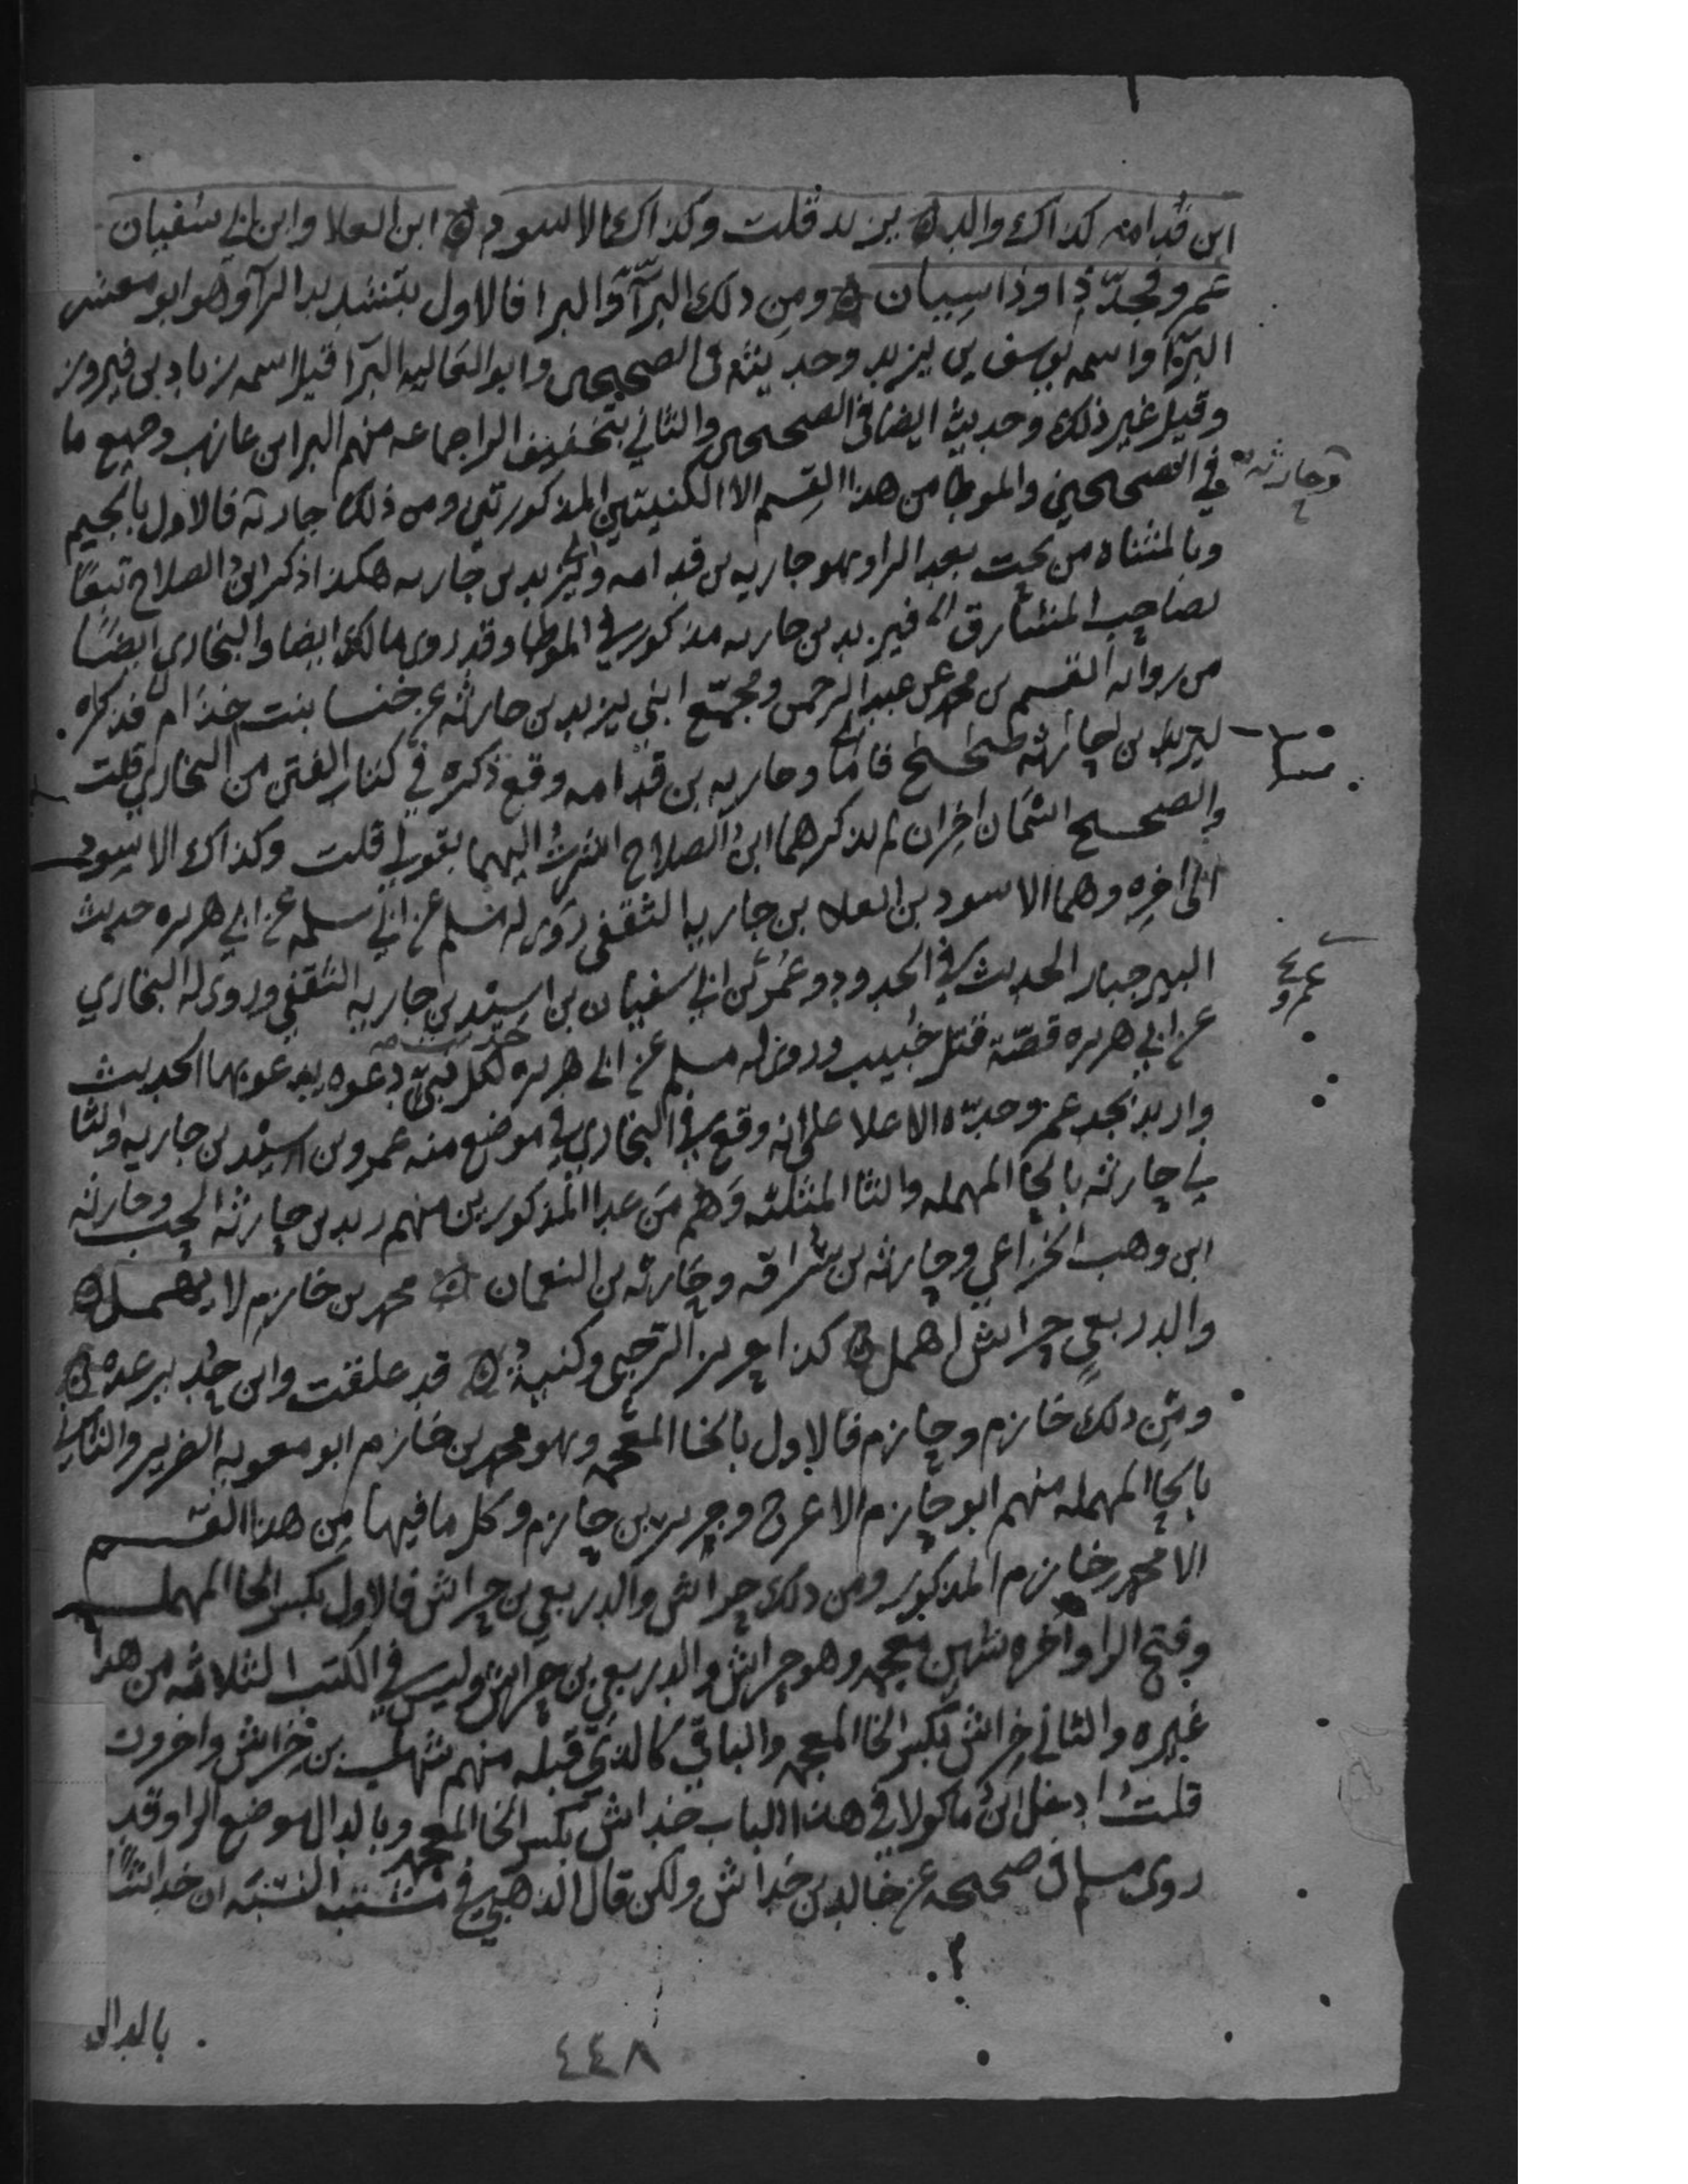 ابن قدامه كذاك والد ۞ يزيد قلت وكذاك الاسود ۞ ابن العلا وابن ابي سفيان
عمرو فجدّ ذا وذا سيان ۞ ومن ذلك البرّآء والبرا فالاول بتشديد الرآ وهو ابو معشر
البرّآ واسمه يوسف بن يزيد وحديثه في الصحيحين وابو العاليه البرّآ قيل اسمه زياد بن فيروز
وقيل غير ذلك وحديثه ايضا في الصحيحين والثاني بتخفيف الرا جماعه منهم البرا بن عازب وجميع ما
في الصحيحين والموطا من هذا القسم الا الكنيتين المذكورتين ومن ذلك جاريه فالاول بالجيم
وحارثه
وبالمثناه من تحت بعد الرا وهو جاريه بن قدامه ويزيد بن جاريه هكذا ذكر ابن الصلاح تبعًا
لصاحب المشارق فيزيد بن جاريه مذكور في الموطا وقد روى مالك ايضا والبخاري ايضًا
من روايه القسم بن محمد عن عبد الرحمن ومجمّع ابني يزيد بن جاريه عن خنسا بنت خذام فذكره
ليزيد بن جاريه فاما وجاريه بن قدامه وقع ذكره في كتاب الفتن من البخاري قلت
والصحيح اسمان اخران لم يذكرهما ابن الصلاح اشرتُ اليهما بقولي قلت وكذاك الاسود
الى اخره وهما الاسود بن العلا بن جاريه الثقفي روى له مسلم عن ابي سلمه عن ابي هريره حديث
البير جبار الحديث في الحدود وعمر بن ابي سفيان بن اسيد بن جاريه الثقفي وروى له البخاري
عمرو
عن ابي هريره قصّة قتل خُبيب وروى له مسلم عن ابي هريره حديث لكل نبيّ دعوه يدعو بها الحديث
واريد بجد عمرو جدّه الاعلا على انه وقع في البخاري في موضع منه عمرو بن اسيد بن جاريه والثا
ني حارثه بالحا المهمله والثا المثلثه وَهم مَن عدا المذكورين منهم زيد بن حارثه الحب وحارثه
ابن وهب الخزاعي وحارثه بن سُراقه وحارثه بن النعمان ۞ محمد بن خازم لا يهمل ۞
والد ربعي حراش اهمل ۞ كذا حريز الرحبي وكنيهْ ۞ قد علقت وابن حُدير عده ۞
ومِن ذلك خازم وحازم فالاول بالخا المعجمه وهو محمد بن خازم ابو معويه الضرير والثاني
بالحا المهمله منهم ابو حازم الاعرج وجرير بن حازم وكل ما فيها مِن هذا القسم
الا محمد بن خازم المذكور ومن ذلك حراش والد ربعي بن حراش فالاول بكسر الحا المهمله
وفتح الرا واخره شين معجمه وهو حراش والد ربعي بن حراش وليس في الكتب الثلاثه من هذا
غيره والثاني خِراش بكسر الخا المعجمه والباقي كالذي قبله منهم شهاب بن خِراش واخرون
قلتُ ادخل ابنُ ماكولا في هذا الباب خداش بكسر الخا المعجمه وبالدال موضع الرا وقد
روى مسلم في صحيحه عن خالد بن خداش ولكن قال الذهبي في مشتبه النسبه ان خداشًا
بالدال
٤٤٨